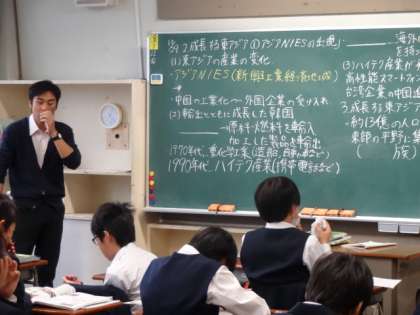 成長する東アジア ①アジアNIESの出現
(1)東アジアの産業の変化
・アジアNIES(新興工業経済地域)
→
・中国の工業化～外国企業の受け入れ
(2)輸出とともに成長した韓国
原料や燃料を輸入
加工した製品を輸出
1970年代、重化学工業(造船、自動車など)
1990年代、ハイテク産業(携帯電話など)
海外
(3)ハイテク産業が
高性能スマートフォ
台湾企業の中国進
3.成長する東アジ
・約13億の人口
東部の平野に
(　　族)